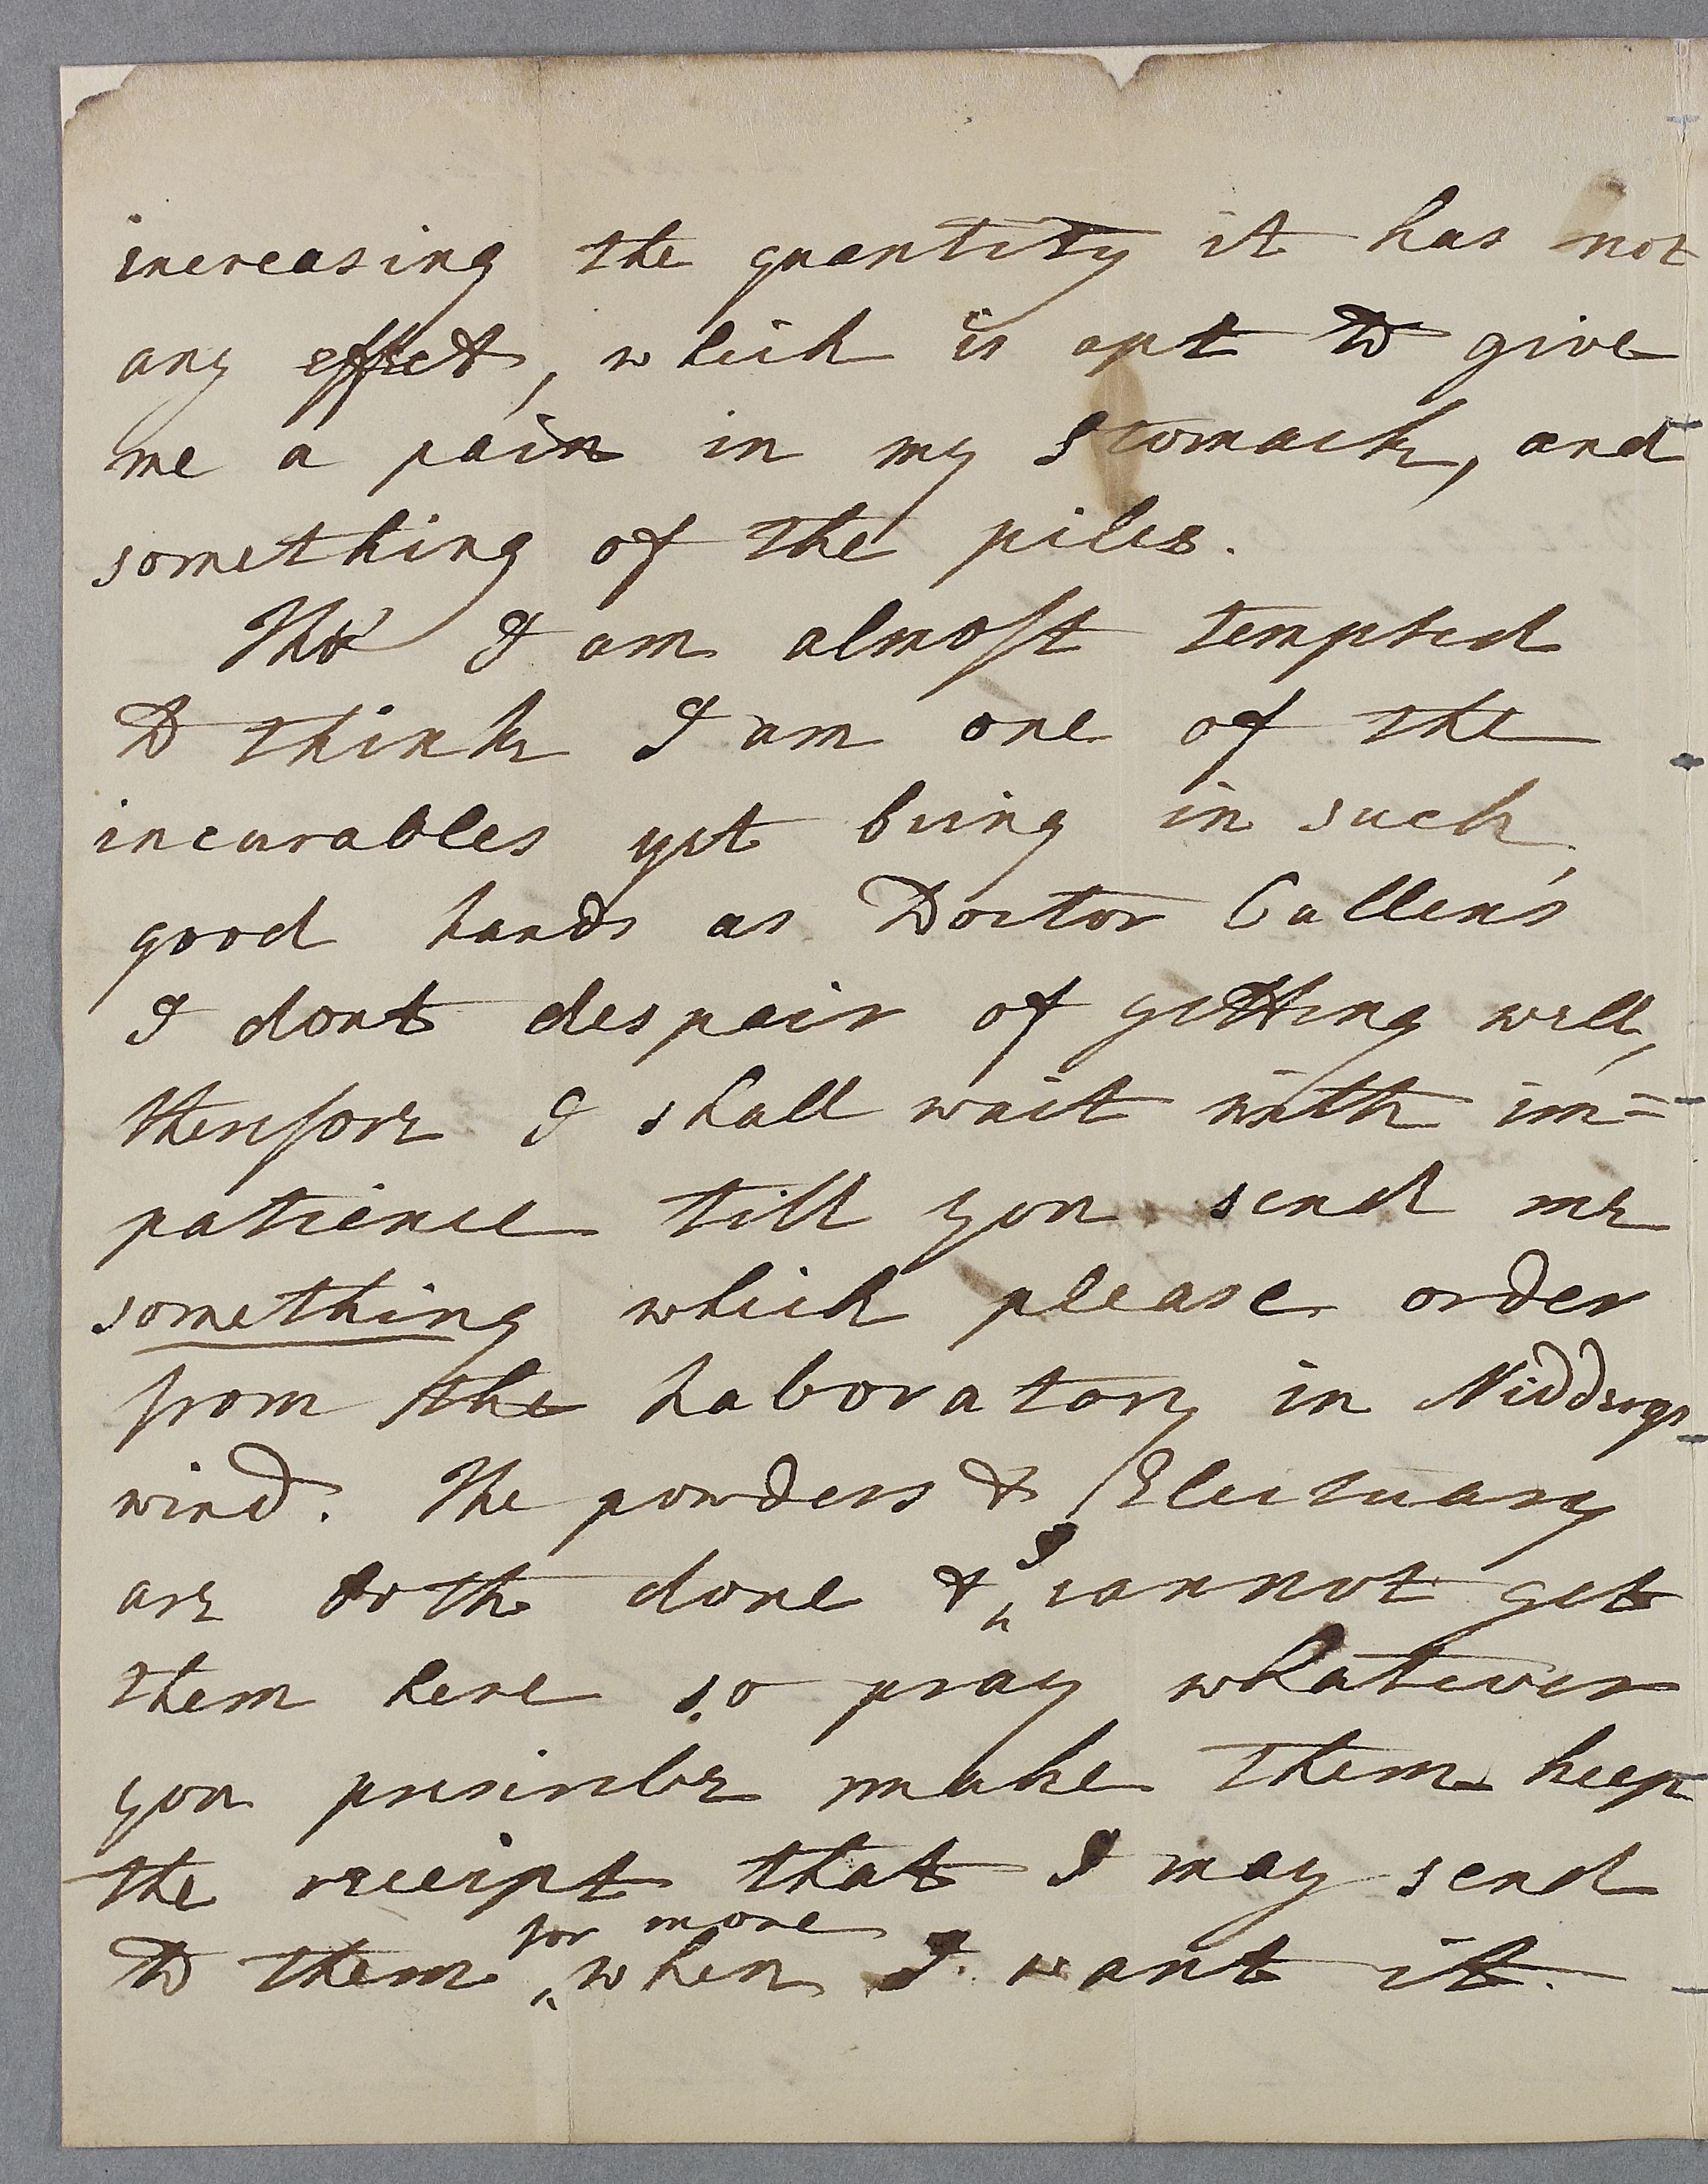 increasing the quantity it has not
any effect, which is apt to give
me a pain in my Stomach, and
something of the piles.
Tho' I am almost tempted
to think I am one of the
incurables yet being in such
good hands as Doctor Cullen's
I dont despair of getting well,
therefore I shall wait with im=
patience till you send me
something which please order
from the Laboratory in Niddrys
wind. The powders & Electuary
are both done & I cannot get
them here so pray whatever
you prescribe make them keep
the receipt that I may send
to them for more when I want it.